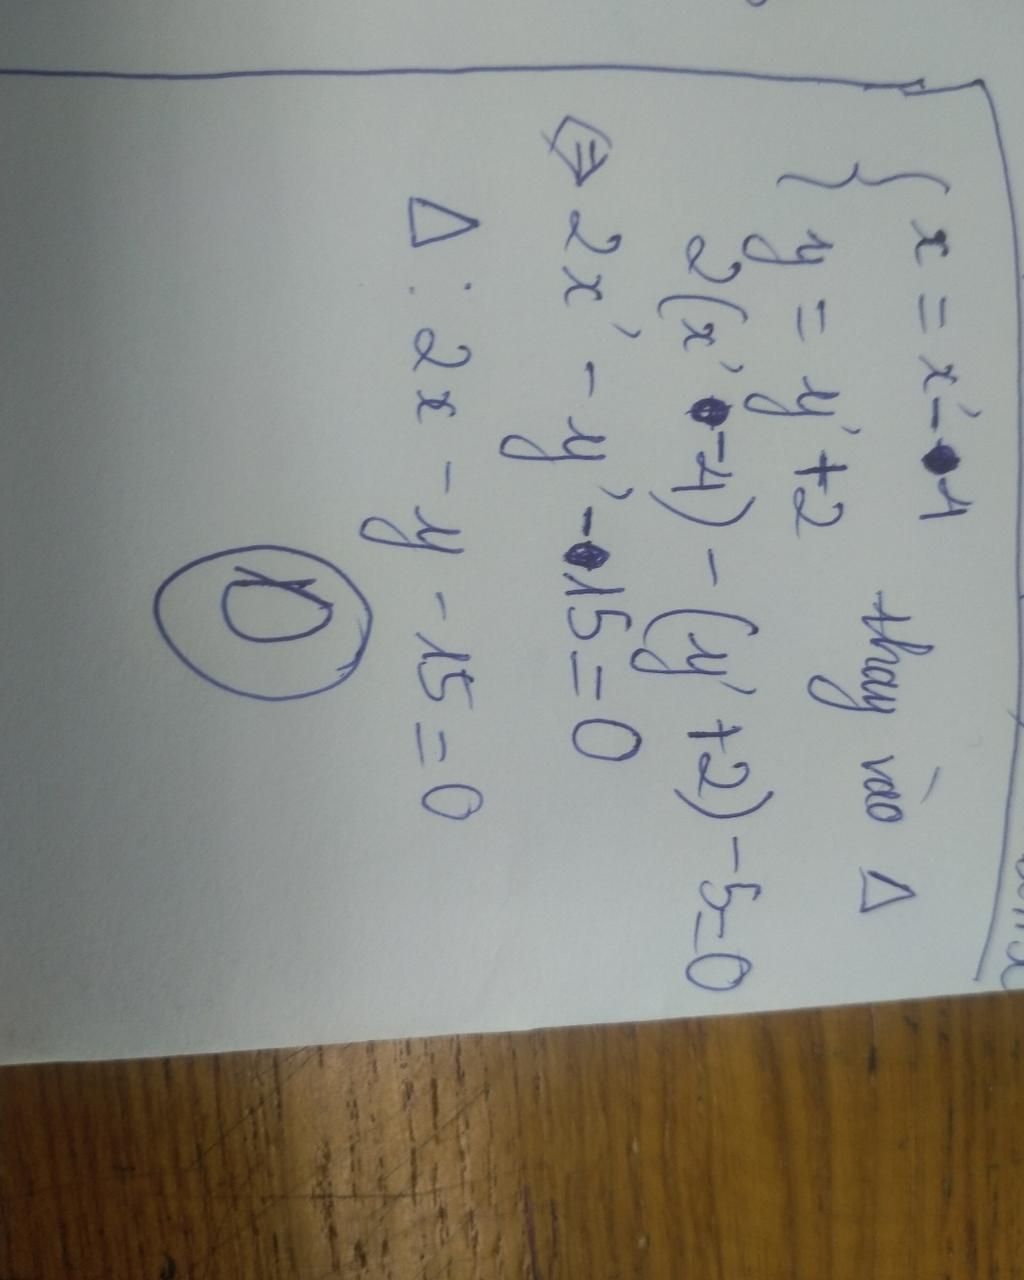 { x = x' - 4
{ y = y' + 2 thay vào Δ
2(x' - 4) - (y' + 2) - 5 = 0
⇔ 2x' - y' - 15 = 0
Δ : 2x - y - 15 = 0
D